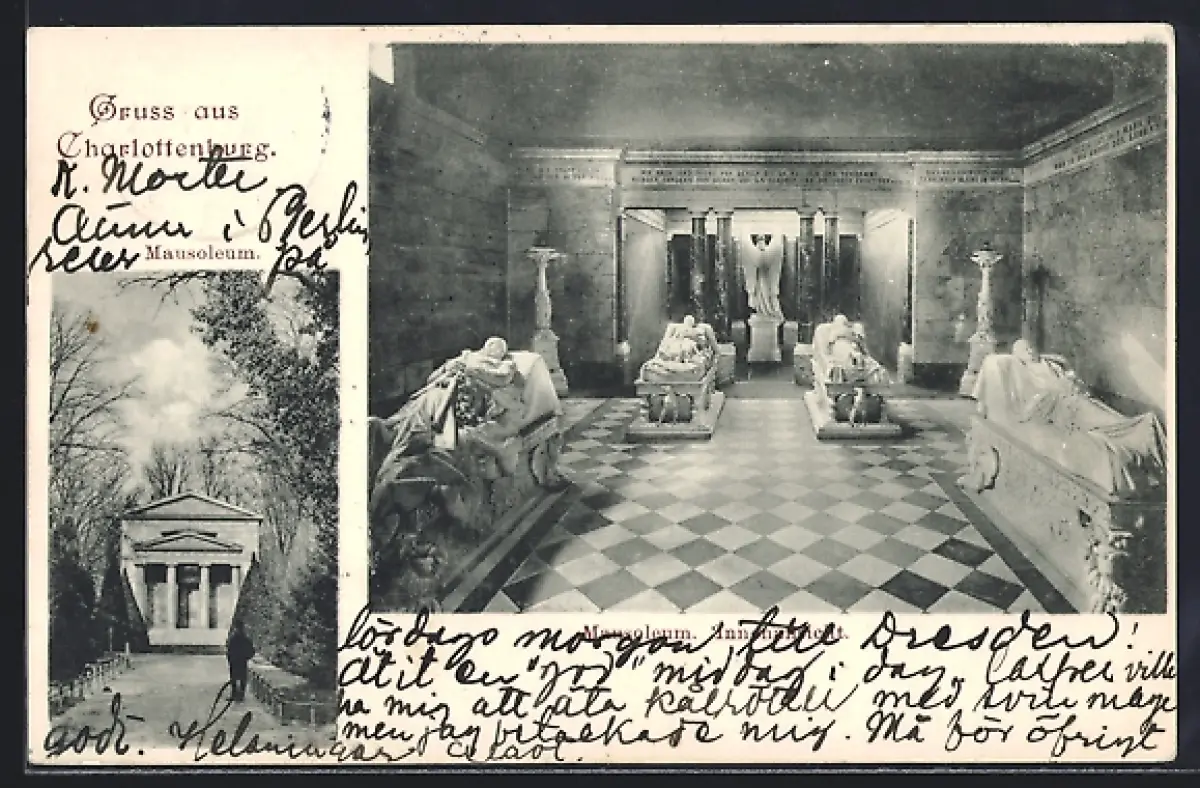 Gruss aus
Charlottenburg.
K. Moster
Ännu i Berlin
reser
Mausoleum.
på
lördags morgon till Dresden!
Mausoleum. Innenansicht.
ätit en "god" middag i dag, ville
ha mig att äta kålrötter med svinmage
men jag betackade mig. Må för öfrigt
godt. Helsningar